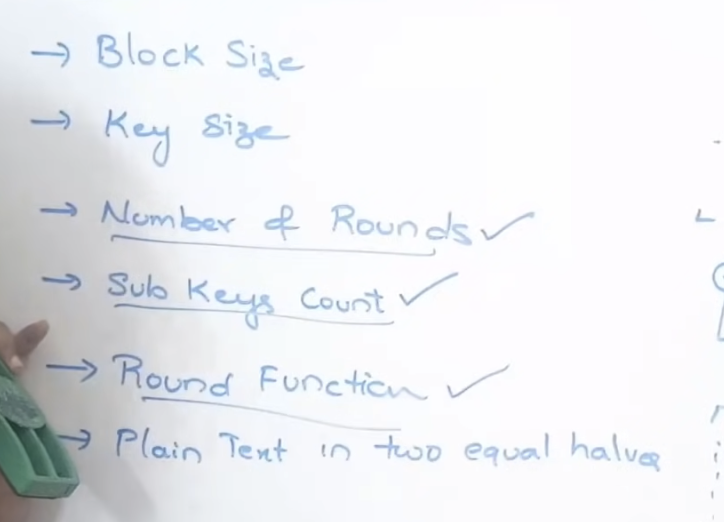 → Block Size
→ Key Size
→ Number of Rounds ✓
→ Sub Keys Count ✓
→ Round Function ✓
→ Plain Text in two equal halves